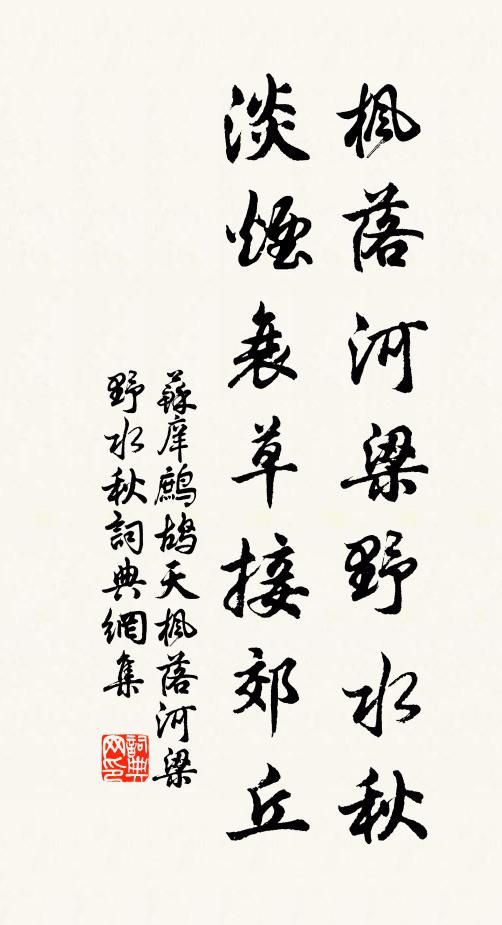 楓落河梁野水秋
淡煙衰草接郊丘
蘇庠鷓鴣天楓落河梁
野水秋詞典網集
詞典
网印